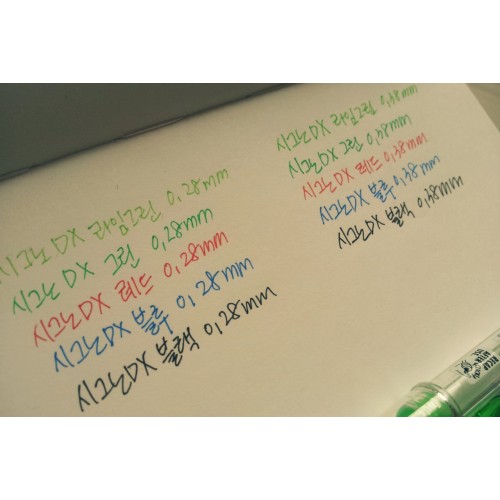 시그노 DX 라임그린 0.28mm
시그노 DX 그린 0.28mm
시그노DX 레드 0.28mm
시그노DX 블루 0.28mm
시그노DX 블랙 0.28mm
시그노DX 라임그린 0.38mm
시그노DX 그린 0.38mm
시그노DX 레드 0.38mm
시그노DX 블루 0.38mm
시그노DX 블랙 0.38mm
RECAP
AFTER
USE